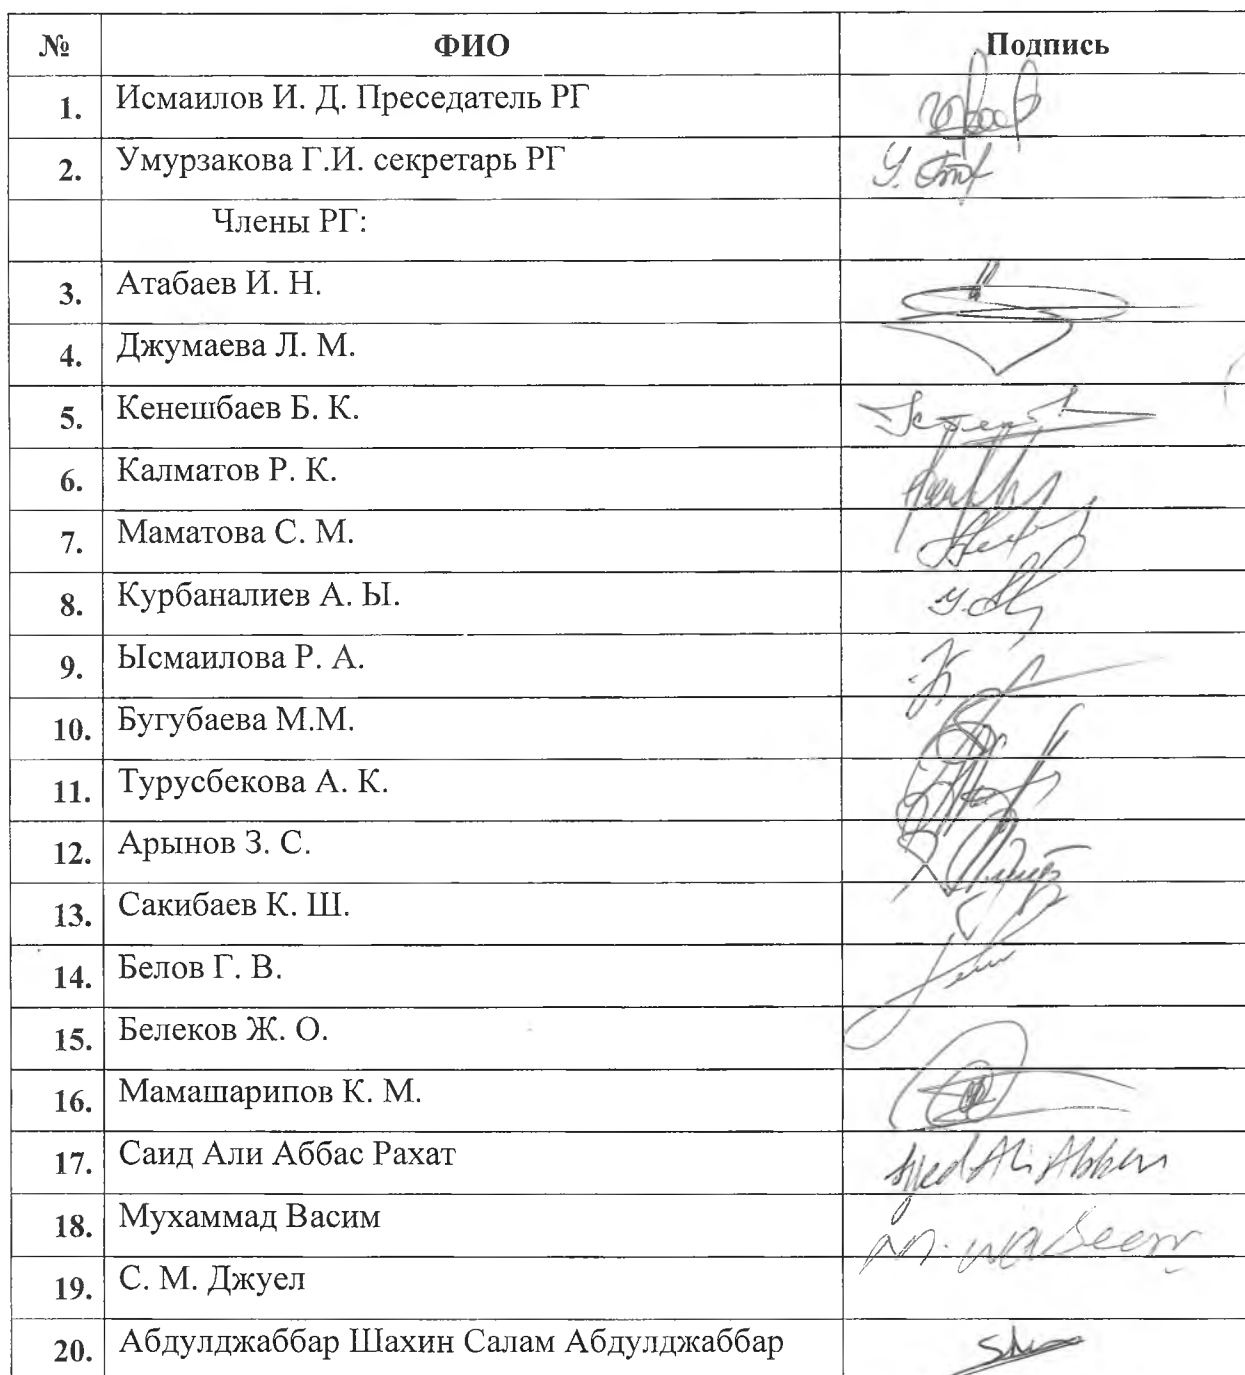 № ФИО Подпись
1. Исмаилов И. Д. Преседатель РГ
2. Умурзакова Г.И. секретарь РГ
Члены РГ:
3. Атабаев И. Н.
4. Джумаева Л. М.
5. Кенешбаев Б. К.
6. Калматов Р. К.
7. Маматова С. М.
8. Курбаналиев А. Ы.
9. Ысмаилова Р. А.
10. Бугубаева М.М.
11. Турусбекова А. К.
12. Арынов З. С.
13. Сакибаев К. Ш.
14. Белов Г. В.
15. Белеков Ж. О.
16. Мамашарипов К. М.
17. Саид Али Аббас Рахат Syed Ali Abbas
18. Мухаммад Васим M. waseem
19. С. М. Джуел
20. Абдулджаббар Шахин Салам Абдулджаббар